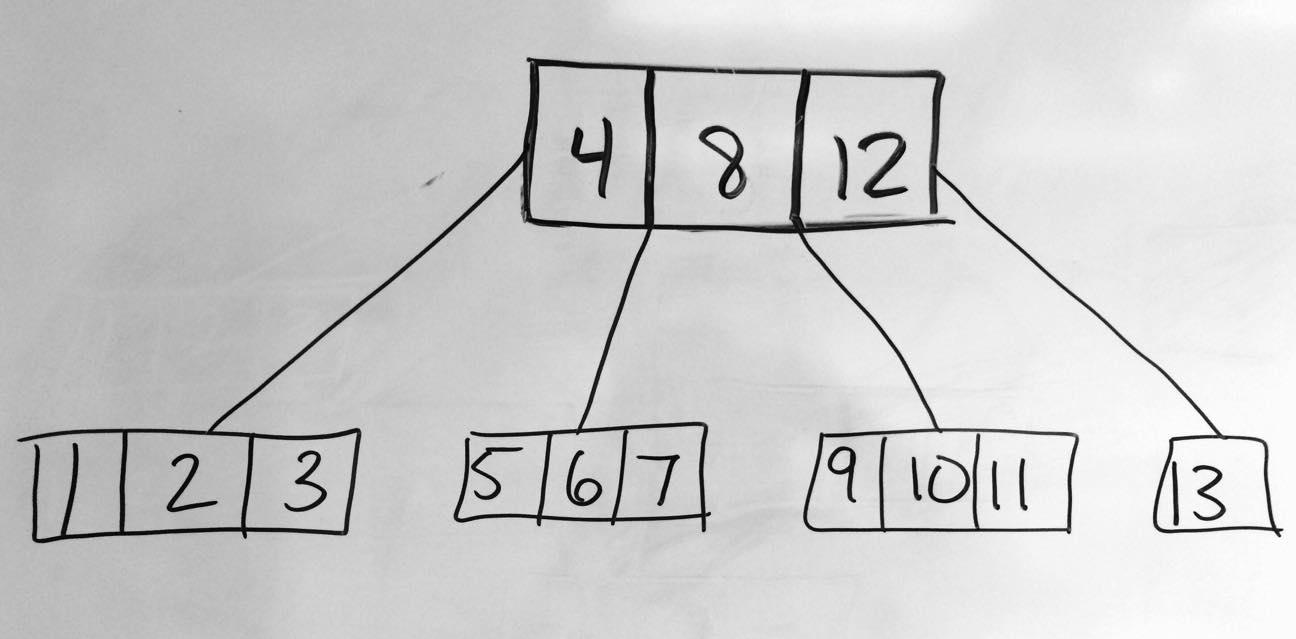 4 8 12
1 2 3 5 6 7 9 10 11 13